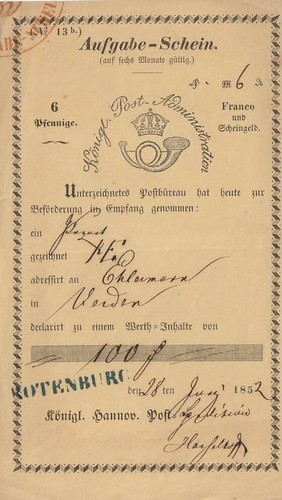 (№ 13 b.)
Aufgabe-Schein.
(auf sechs Monate gültig.)
6
Pfennige.
Königl. Post-Administration
Franco
und
Scheingeld.
Unterzeichnetes Postbüreau hat heute zur
Beförderung in Empfang genommen:
ein
gezeichnet
addressirt an Ehlermann
in Verden
declarirt zu einem Werth-Inhalte von
100
ROTENBURG
den 28 ten Juni 1852
Königl. Hannov. Post